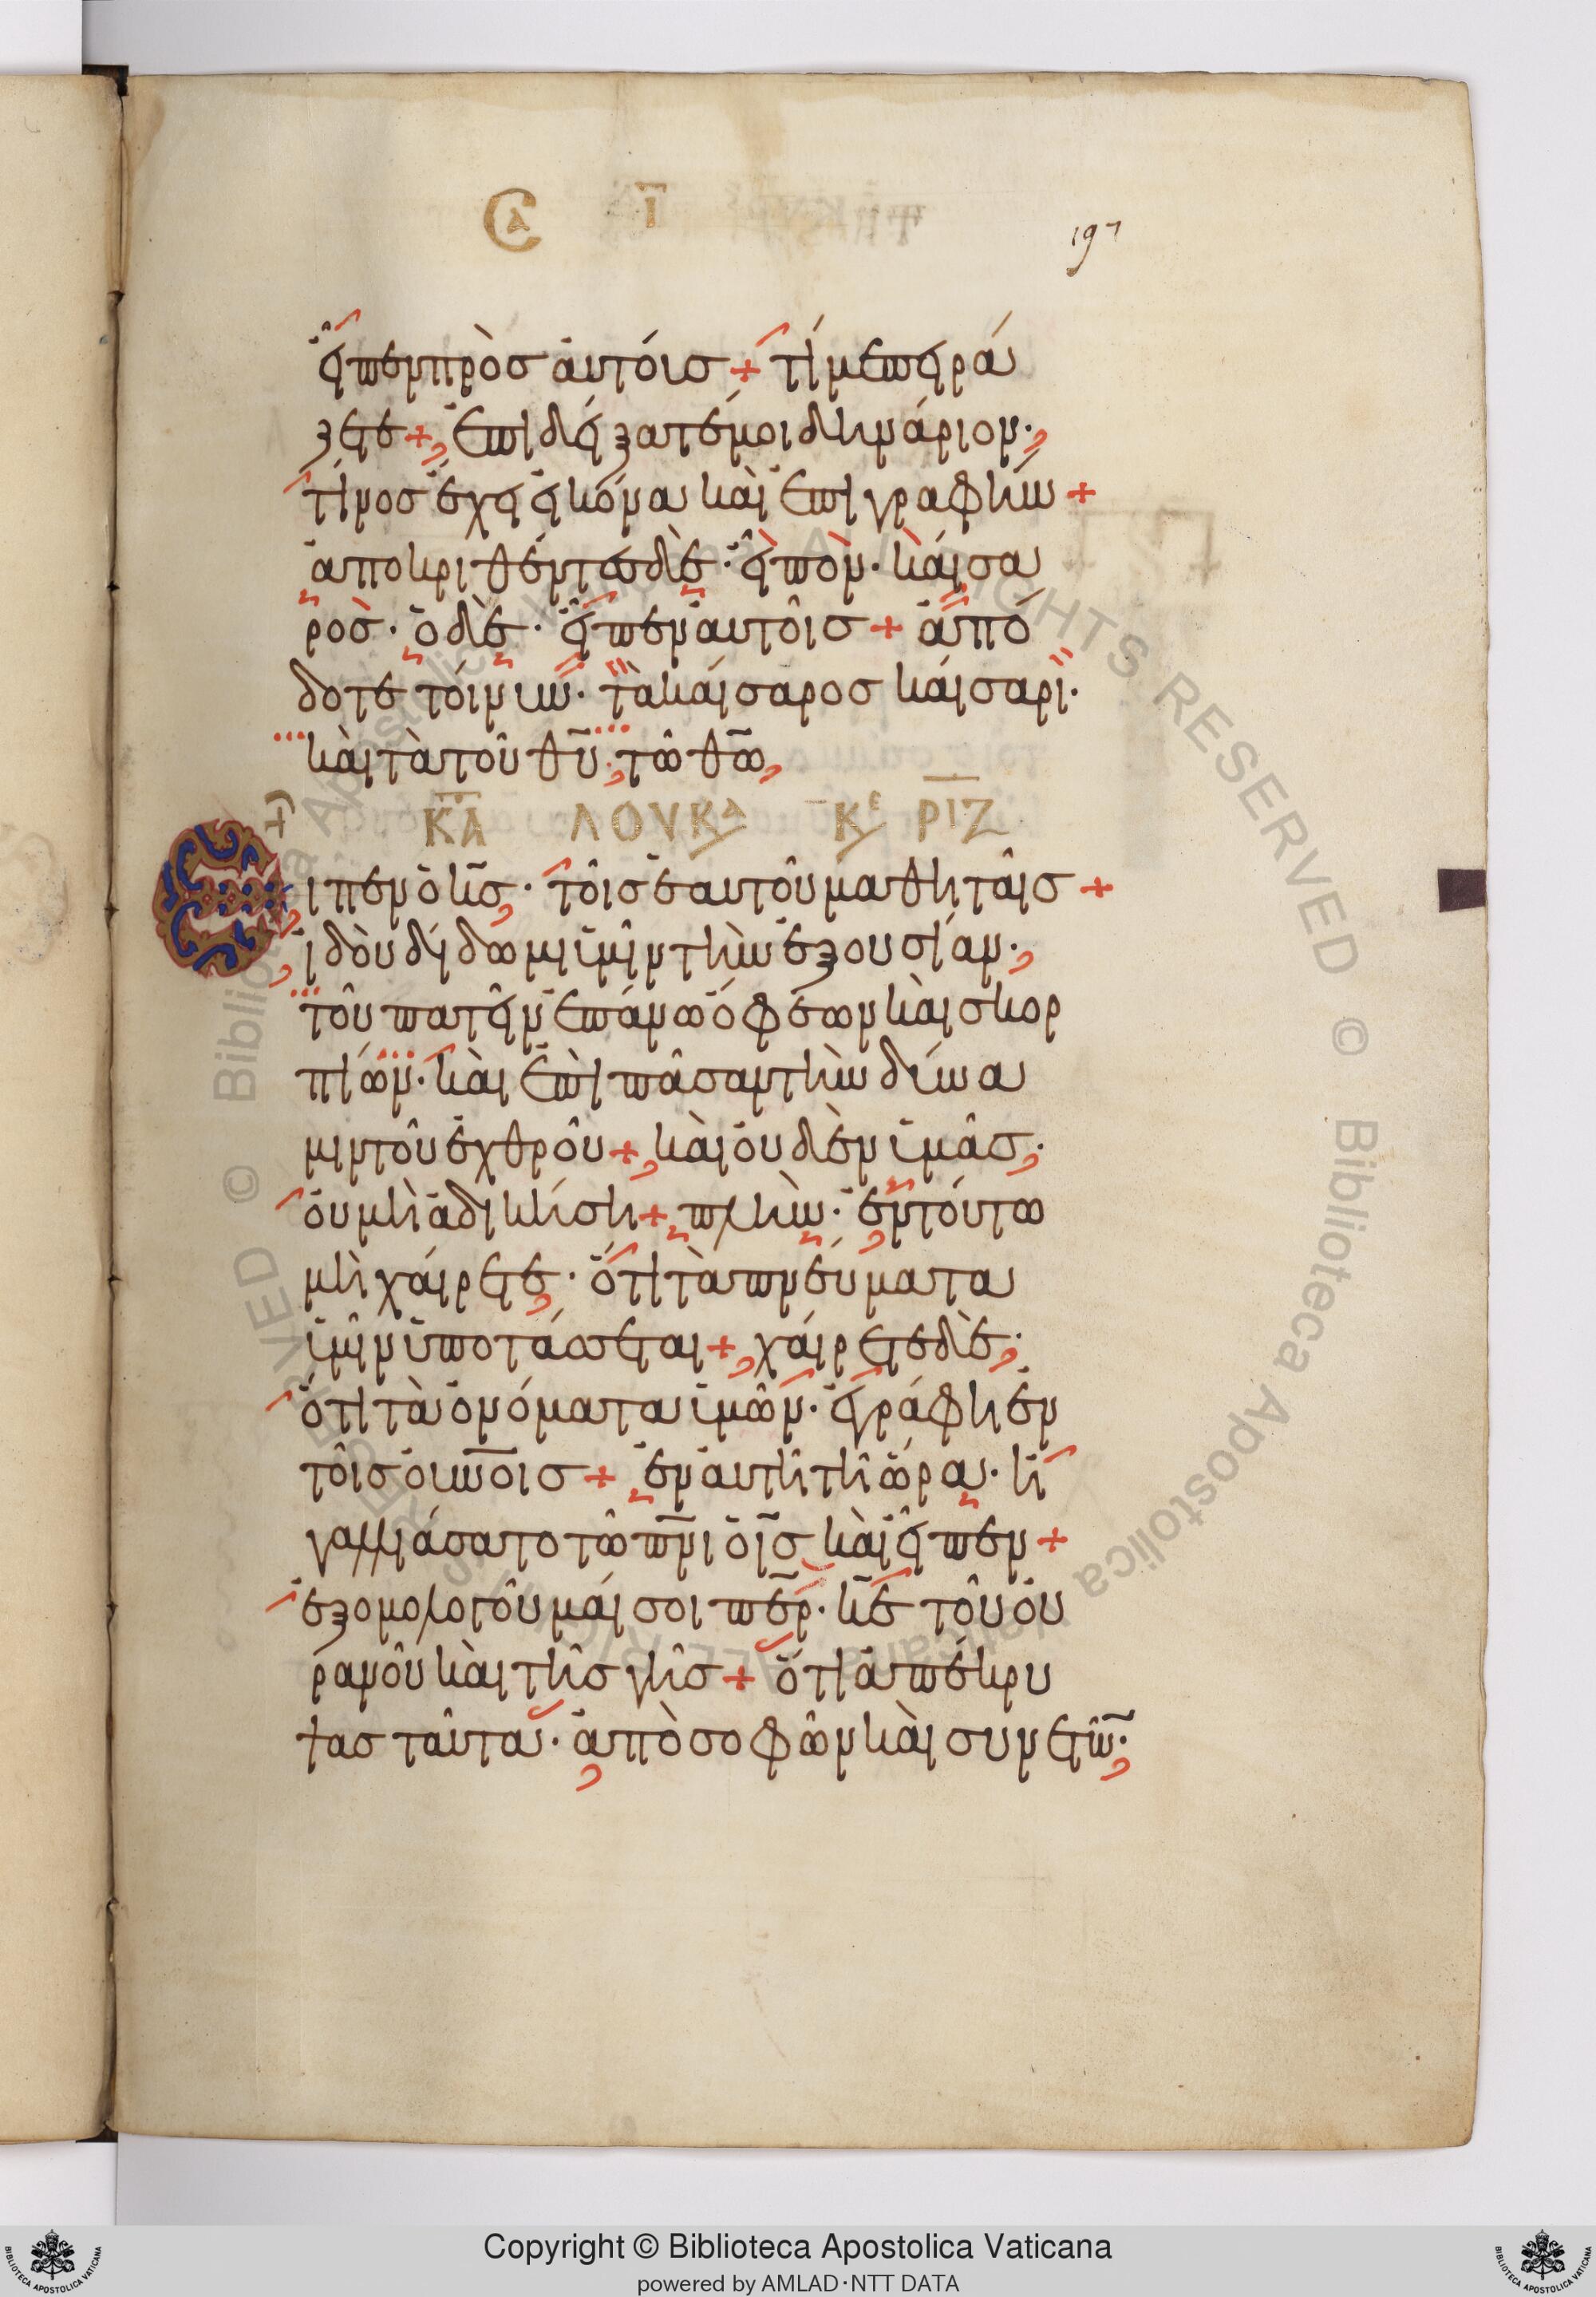 Cα Ι̅
197
εἶπεν πρὸσ ἀυτόισ + τί με πειρά
ζετε + ἐπιδείξατέ μοι δηνάριον·
τίνοσ ἔχει εἰκόνα καὶ ἐπιγραφήν +
ἀποκριθέντεσ δὲ· εἶπὸν· κάισα
ροσ· ὁ δὲ· εἶπεν ἀυτοῖσ + ἀπό
δοτε τόινυν· τὰ κάισαροσ κάισαρι·
καὶ τὰ τοῦ θ̅υ̅· τῶ θ̅ω̅
Κ̅Α̅ ΛΟΥΚα Κε Ρ̅Ι̅Ζ̅
Εἶπεν ὁ κ̅σ̅· τοῖσ ἑαυτοῦ μαθηταῖσ +
ἰδὸυ δίδωμι ὑμῖν τὴν ἐξουσίαν·
τοῦ πατεῖν ἐπάνω ὄφεων καὶ σκορ
πίων· καὶ ἐπὶ πᾶσαν τὴν δύνα
μιν τοῦ ἐχθροῦ + καὶ οὐδὲν ὑμᾶσ·
ὀυ μὴ ἀδικήση + πλὴν· ἐν τόυτω
μὴ χάιρετε· ὅτι τὰ πνέυματα
ὑμῖν ὑποτάσσεται + χάιρετε δὲ·
ὅτι τὰ ὀνόματα ὑμῶν· ἐγράφη ἐν
τοῖσ ὀυνοῖσ + ἐν ἀυτῆ τῆ ὥρα· ἠ
γαλλιάσατο τῶ π̅ν̅ι ὁ ι̅σ̅ καὶ εἶπεν +
ἐξομολογοῦμάι σοι π̅ε̅ρ̅· κ̅ε̅ τοῦ ὀυ
ρανοῦ καὶ τῆσ γῆσ + ὅτι ἀπέκρυ
ψασ ταῦτα· ἀπὸ σοφῶν καὶ συνετῶν·
Copyright © Biblioteca Apostolica Vaticana
powered by AMLAD·NTT DATA